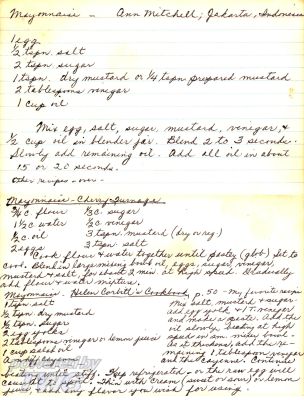 Mayonnaise - Ann Mitchell, Jakarta, Indonesia
1 egg
1/2 tspn. salt
2 tspn. sugar
1 tspn. dry mustard or 1/4 tspn prepared mustard
2 tablespoons vinegar
1 cup oil
Mix egg, salt, sugar, mustard, vinegar, &
1/2 cup oil in blender jar. Blend 2 to 3 seconds.
Slowly add remaining oil. Add all oil in about
15 or 20 seconds.
Other recipes - over -
Mayonnaise - Cherry Burnap's
c flour 1/3 c. sugar
1 1/2 c water 1/2 c vinegar
1/2 c oil 3 tspn. mustard (dry or reg)
2 eggs 3 tspn. salt
Cook flour & water together until pasty (glob) Set to
cool. Blend in large mixing bowl oil, eggs, sugar, vinegar,
mustard & salt, for about 2 min. at high speed. Gradually
add flour & water mixture.
Mayonnaise. Helen Corbitt's Cookbook, p. 50 - my favorite recipe
1 tspn salt
1/2 tspn. dry mustard
tspn. sugar
2 egg yolks
2 tablespoons vinegar or lemon juice
1 cup salad oil
Mix salt, mustard & sugar
add egg yolks & 1 T. vinegar
and make a paste. Add the
oil slowly, beating at high
speed in sm. mixer bowl.
As it thickens, add the re-
maining 1 tablespoon vinegar
and the Cayenne. Continue
beating until stiff. Keep refrigerated - or the raw egg will
Thin with cream (sweet or sour) or lemon
juice & add any flavor you wish for using.